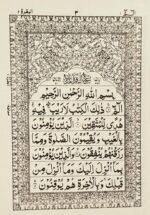 ٣
بِسْمِ اللهِ الرَّحْمٰنِ الرَّحِيْمِ
الٓمّٓ ذٰلِكَ الْكِتٰبُ لَا رَيْبَ فِيْهِ
هُدًى لِّلْمُتَّقِيْنَ الَّذِيْنَ يُؤْمِنُوْنَ
بِالْغَيْبِ وَيُقِيْمُوْنَ الصَّلٰوةَ وَمِمَّا
رَزَقْنٰهُمْ يُنْفِقُوْنَ وَالَّذِيْنَ يُؤْمِنُوْنَ
بِمَآ اُنْزِلَ اِلَيْكَ وَمَآ اُنْزِلَ مِنْ
قَبْلِكَ وَبِالْاٰخِرَةِ هُمْ يُوْقِنُوْنَ